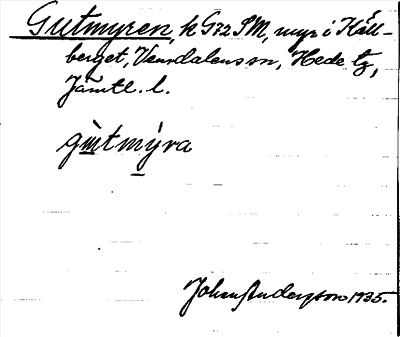 Gutmyren, k G72 SM, myr i Käll-
berget, Vemdalens sn, Hede tg,
Jämtl. l.
gùtmýra
Johan Anderson 1935.